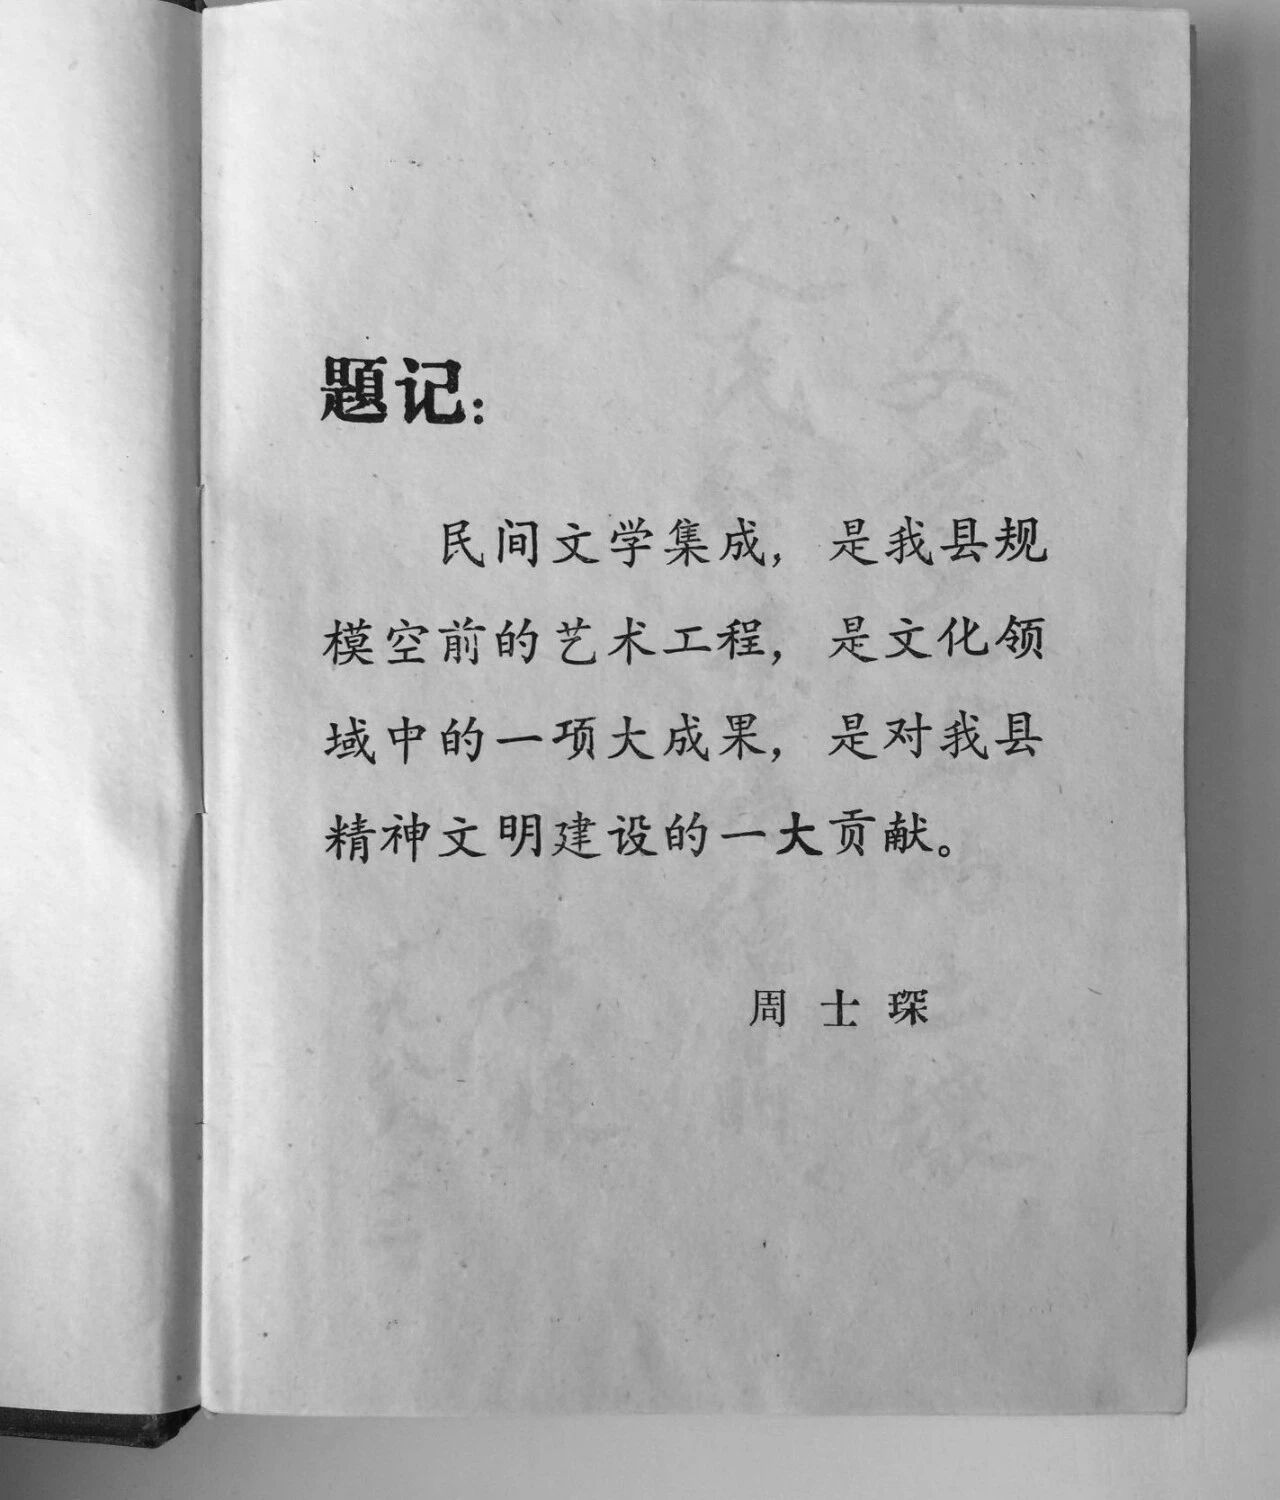 题记：
民间文学集成，是我县规
模空前的艺术工程，是文化领
域中的一项大成果，是对我县
精神文明建设的一大贡献。
周士琛